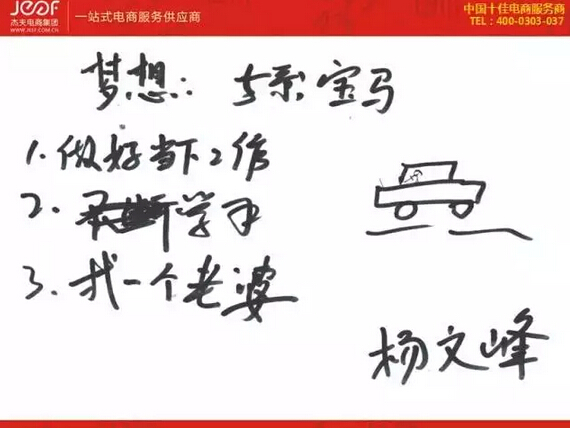 JEOF
杰夫电商集团
WWW.JXEF.COM.CN
一站式电商服务供应商
中国十佳电商服务商
TEL：400-0303-037
梦想： 5系宝马
1.做好当下工作
2.不断学习
3.找一个老婆
杨文峰